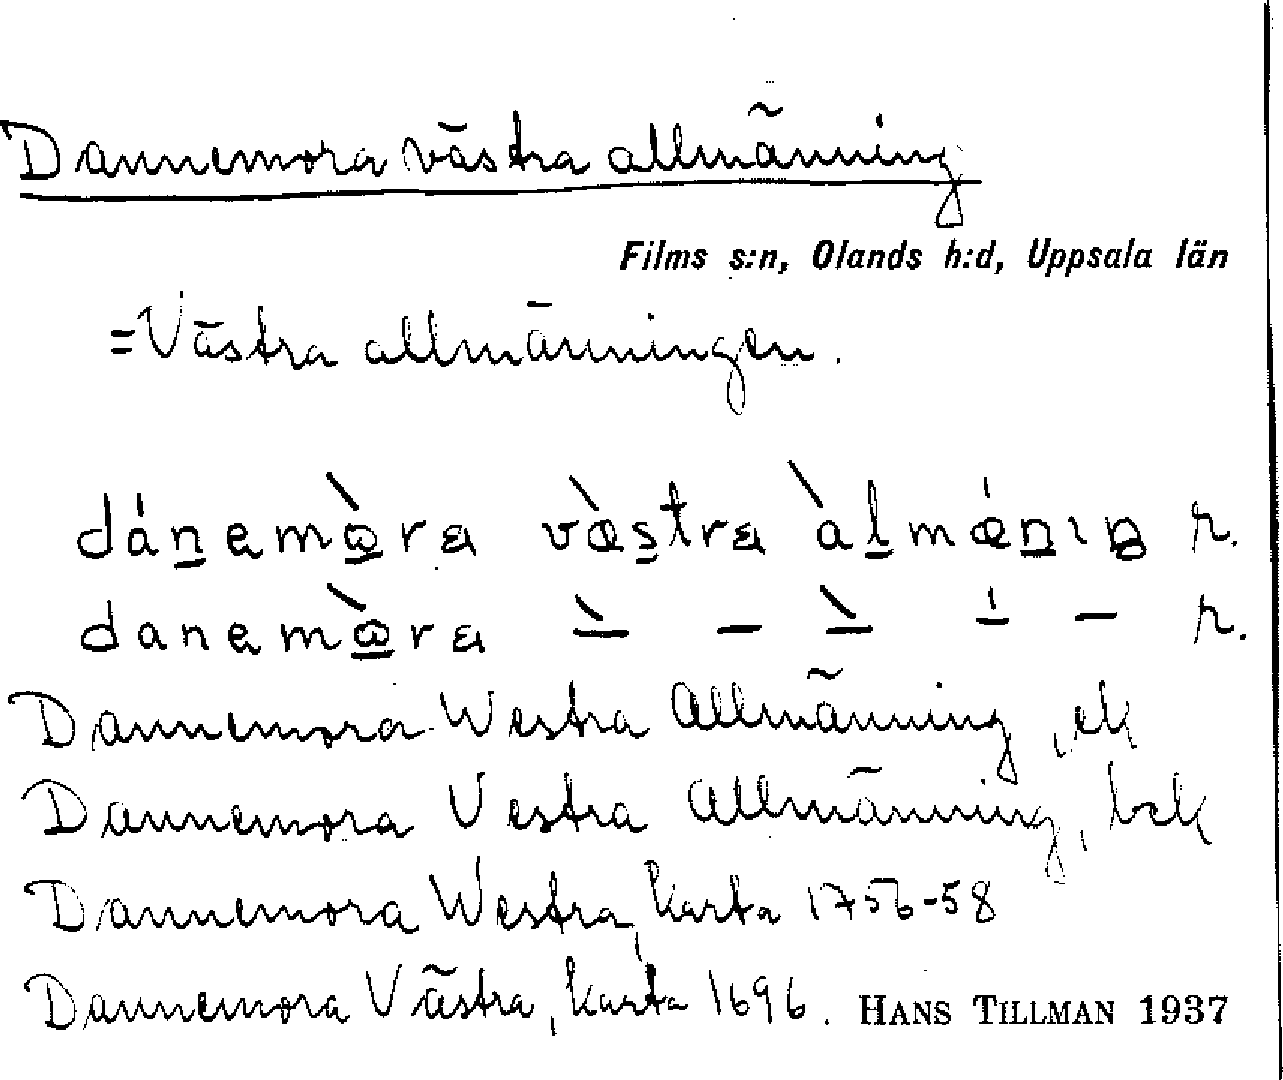 Dannemora västra allmänning
Films s:n, Olands h:d, Uppsala län
=Västra allmänningen.
dánemòra vàstra àlmánıŋ r.
danemòra – – – – – r.
Dannemora Westra Allmänning, ek
Dannemora Vestra Allmänning, bek
Dannemora Westra, karta 1756-58
Dannemora Västra, karta 1696. HANS TILLMAN 1937